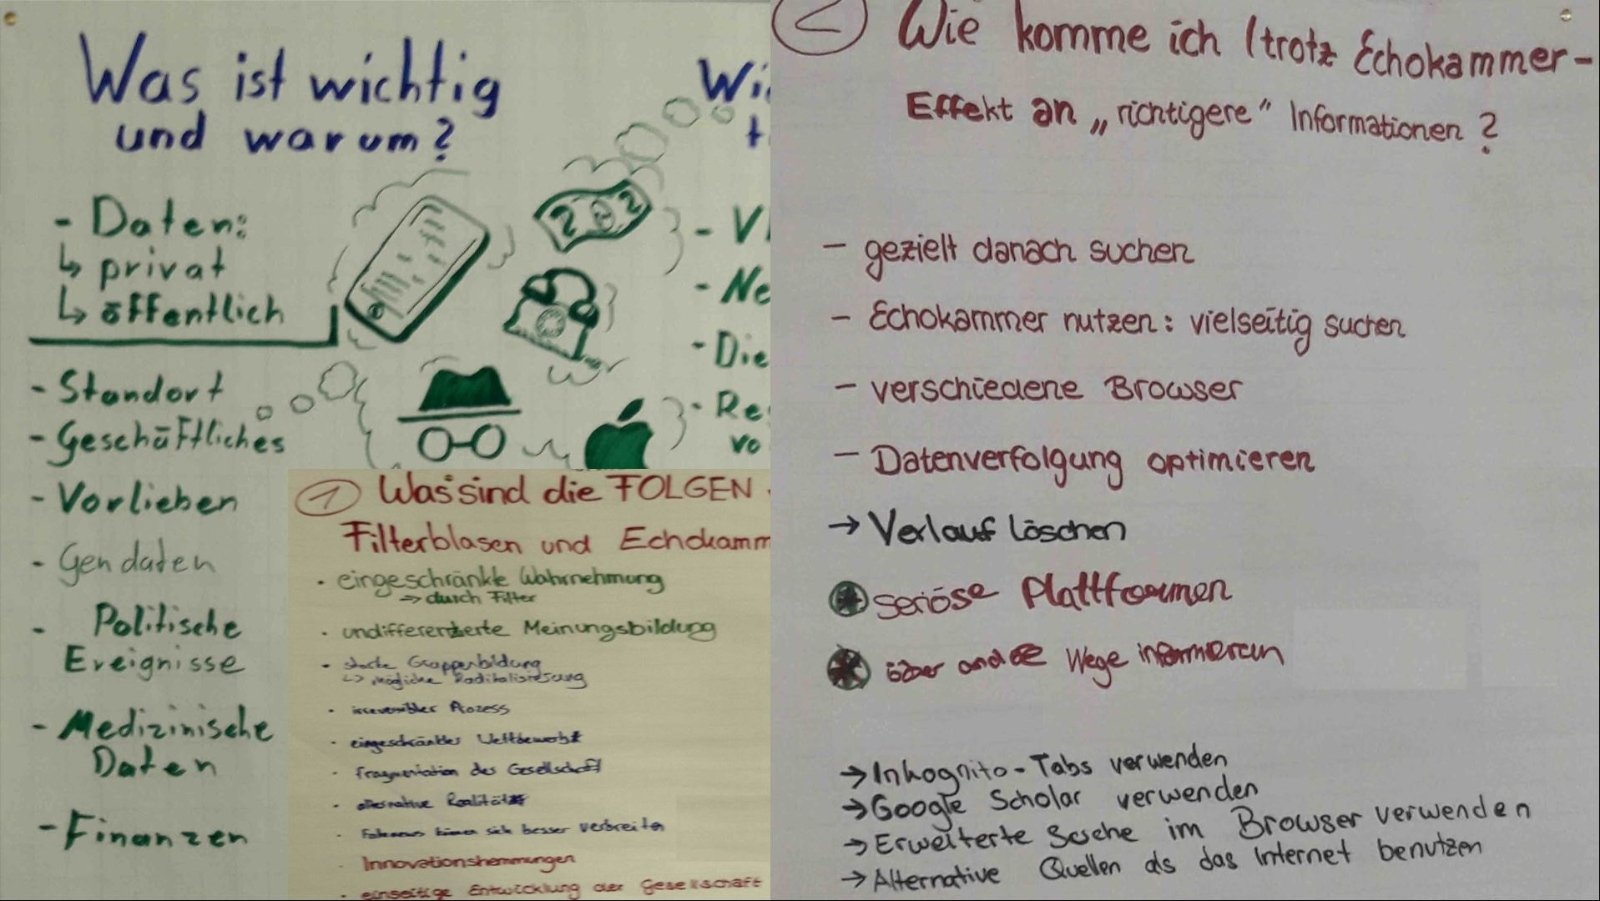 Was ist wichtig
und warum?
- Daten:
↳ privat
↳ öffentlich
- Standort
- Geschäftliches
- Vorlieben
- Gendaten
- Politische
Ereignisse
- Medizinische
Daten
- Finanzen
2 2 2
Wi
t
- V
- Ne
- Die
- Re
vo
1 Was sind die FOLGEN
Filterblasen und Echokamm
· eingeschränkte Wahrnehmung
→ durch Filter
· undifferenzierte Meinungsbildung
· starke Gruppenbildung
↳ mögliche Radikalisierung
· irreversibler Prozess
· eingeschränkter Wettbewerb
· Fragmentation der Gesellschaft
· alternative Realität
· Fakenews können sich besser verbreiten
· Innovationshemmungen
· einseitige Entwicklung der Gesellschaft
2 Wie komme ich (trotz Echokammer-
Effekt an „richtigere" Informationen?
- gezielt danach suchen
- Echokammer nutzen: vielseitig suchen
- verschiedene Browser
- Datenverfolgung optimieren
→ Verlauf löschen
seriöse Plattformen
über andere Wege informieren
→ Inkognito-Tabs verwenden
→ Google Scholar verwenden
→ Erweiterte Suche im Browser verwenden
→ Alternative Quellen als das Internet benutzen